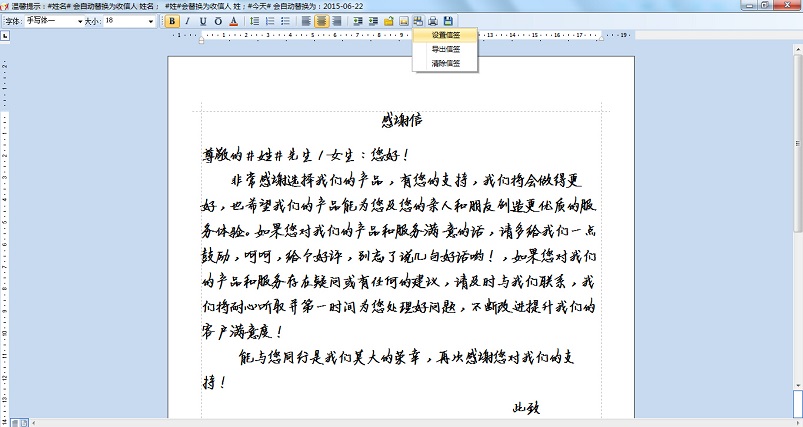 温馨提示：#姓名# 会自动替换为收信人 姓名； #姓#会替换为收信人 姓；#今天# 会自动替换为：2015-06-22
字体： 手写体一 大小： 18 B I U O A
设置信签
导出信签
清除信签
感谢信
尊敬的#姓#先生/女生：您好！
非常感谢选择我们的产品，有您的支持，我们将会做得更
好，也希望我们的产品能为您及您的亲人和朋友创造更优质的服
务体验。如果您对我们的产品和服务满意的话，请多给我们一点
鼓励，呵呵，给个好评，别忘了说几句好话哟！，如果您对我们
的产品和服务存在疑问或有任何的建议，请及时与我们联系，我
们将耐心听取并第一时间为您处理好问题，不断改进提升我们的
客户满意度！
能与您同行是我们莫大的荣幸，再次感谢您对我们的支
持！
此致